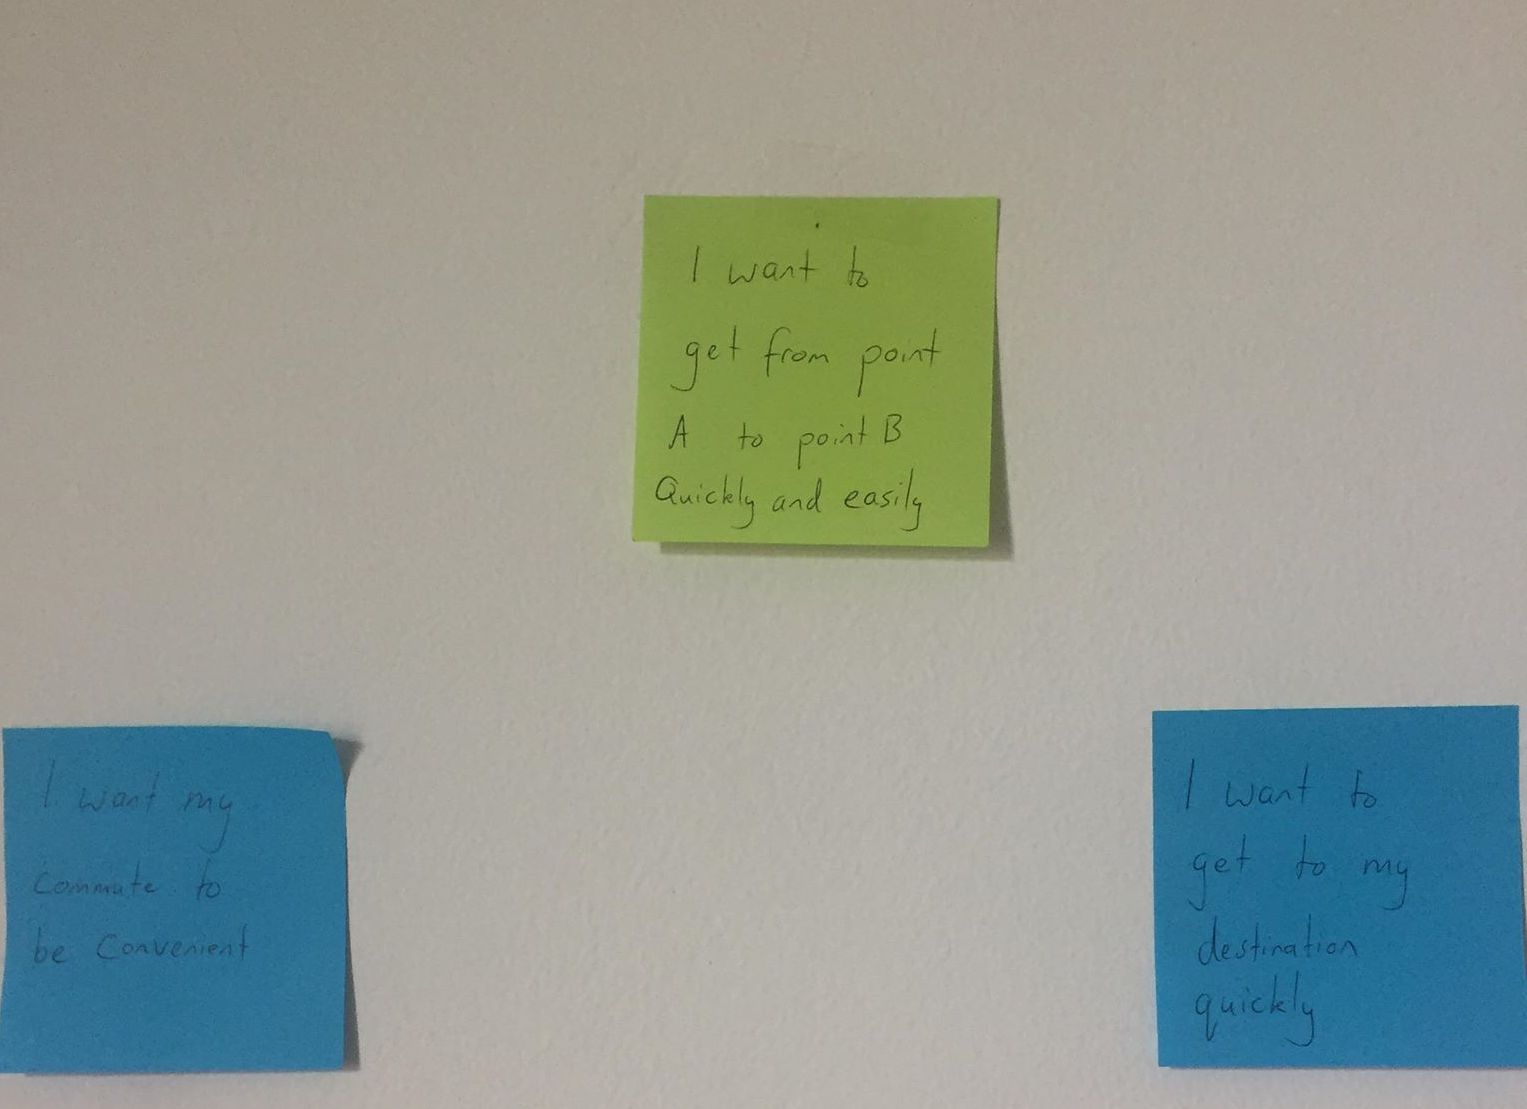 I want to
get from point
A to point B
Quickly and easily
I want my
Commute to
be Convenient
I want to
get to my
destination
quickly